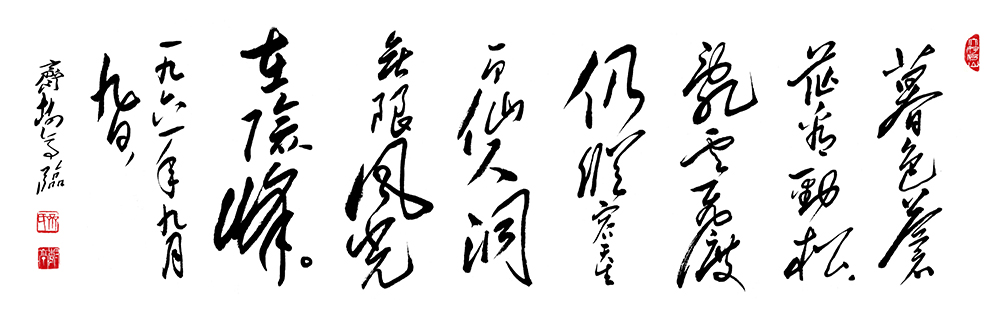 暮色蒼
茫看勁松.
亂雲飛渡
仍從容天生
一个仙人洞
無限風光
在險峰。
一九六一年九月
九日,
齊 臨